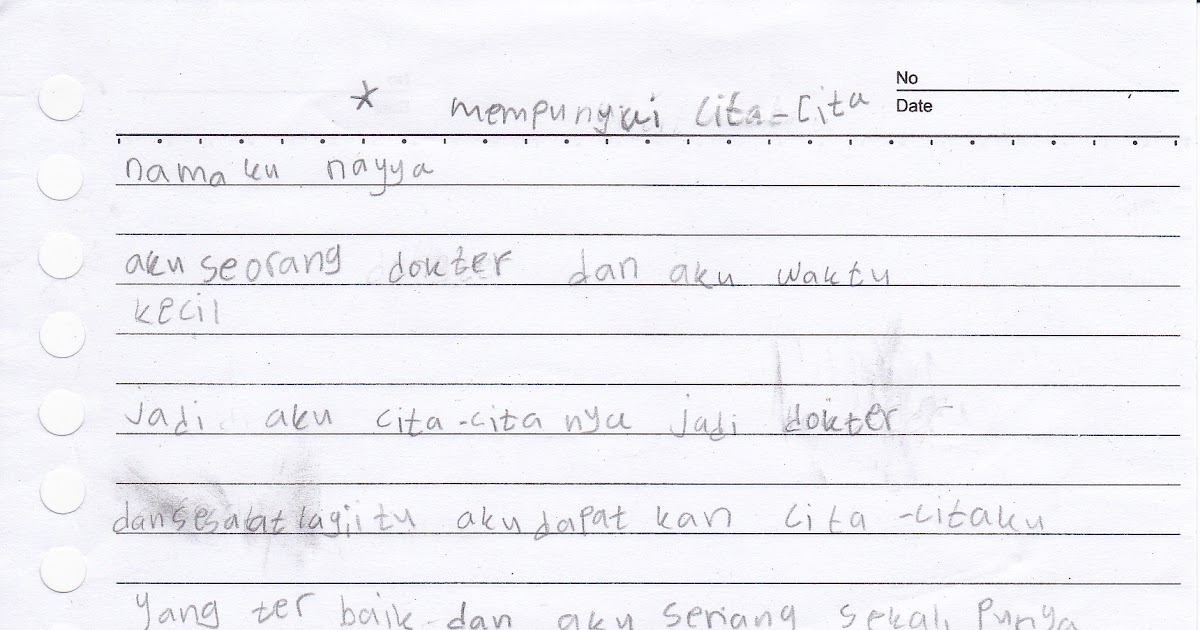 No
* mempunyai cita-cita
Date
nama ku nayya
aku seorang dokter dan aku waktu
kecil
jadi aku cita-cita nya jadi dokter
dan sesalat lagi itu aku dapat kan cita-citaku
yang ter baik dan aku senang sekali punya